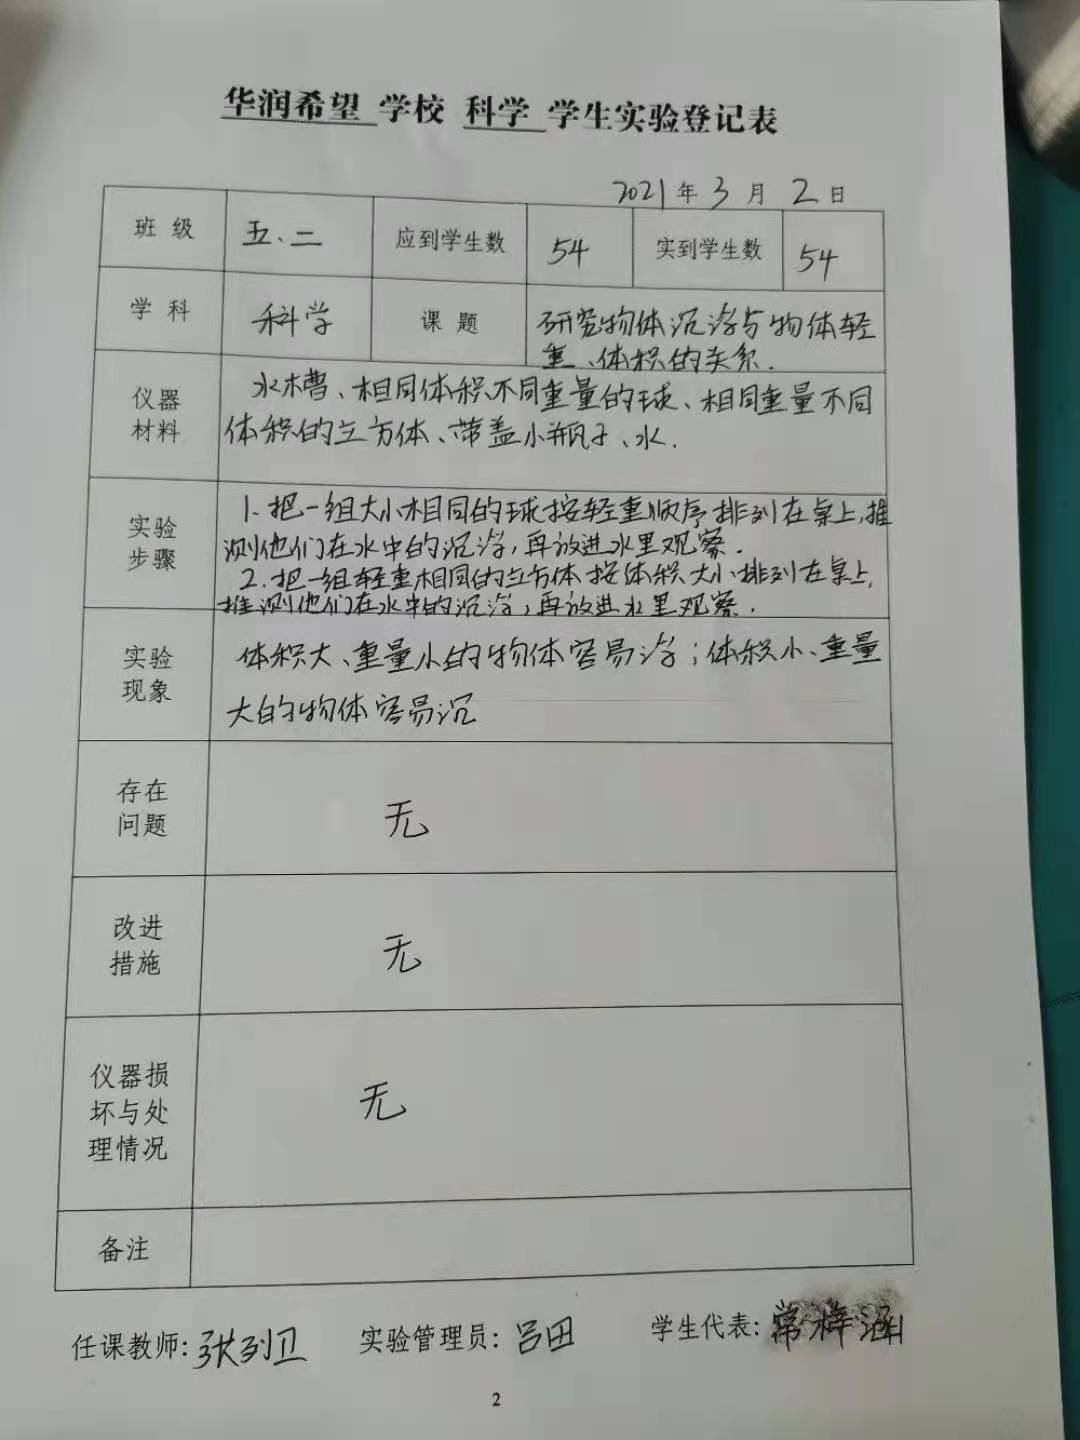 华润希望 学校 科学 学生实验登记表
2021年3月2日
班级 五、二 应到学生数 54 实到学生数 54
学科 科学 课题 研究物体沉浮与物体轻
重、体积的关系.
仪器
材料
水槽、相同体积不同重量的球、相同重量不同
体积的立方体、带盖小瓶子、水.
实验
步骤
1.把一组大小相同的球按轻重顺序排列在桌上,推
测他们在水中的沉浮,再放进水里观察.
2.把一组轻重相同的立方体按体积大小排列在桌上,
推测他们在水中的沉浮,再放进水里观察.
实验
现象
体积大、重量小的物体容易浮;体积小、重量
大的物体容易沉
存在
问题
无
改进
措施
无
仪器损
坏与处
理情况
无
备注
任课教师:张列卫 实验管理员:吕田 学生代表:常梓涵
2